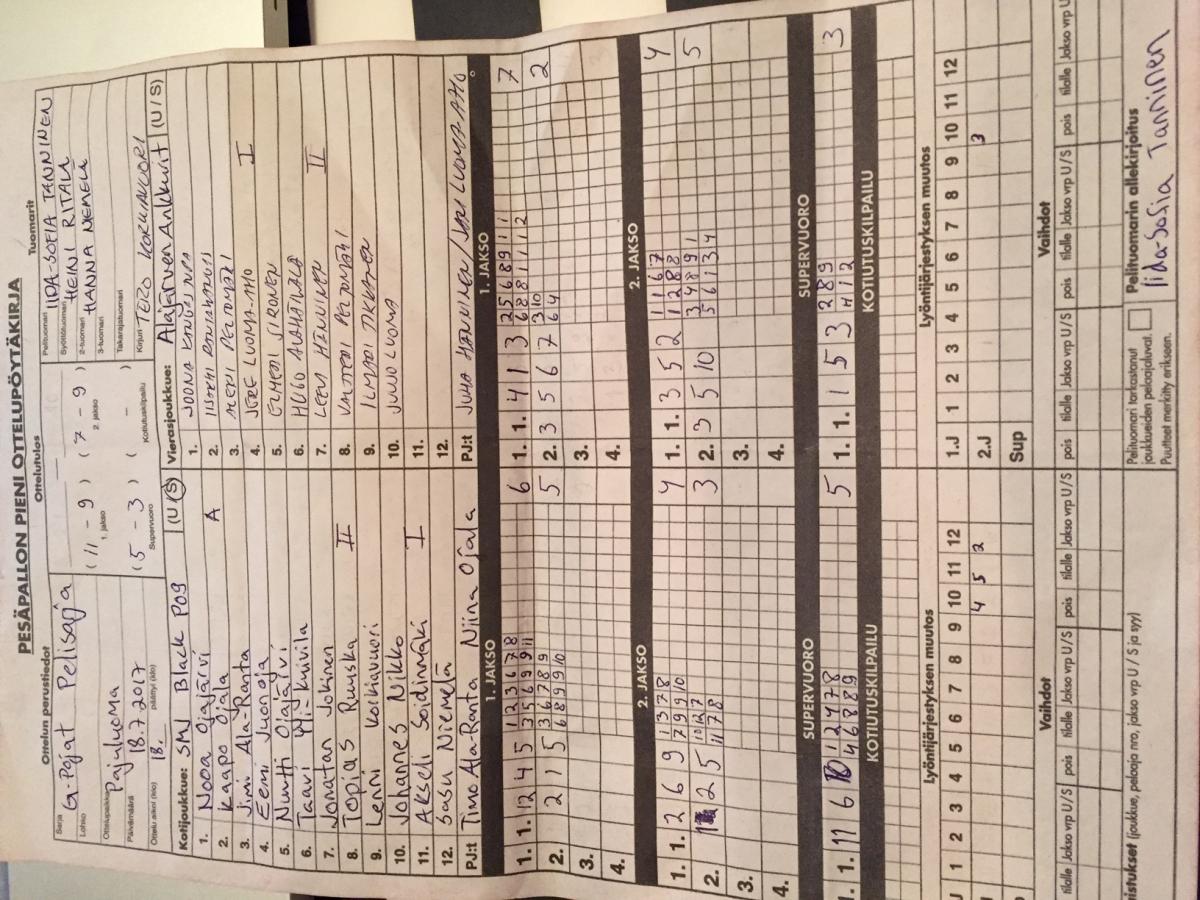 PESÄPALLON PIENI OTTELUPÖYTÄKIRJA
Ottelun perustiedot
Ottelutulos
Tuomarit
Sarja G-Pojat Pelisarja
Lohko
Ottelupaikka Pajuluoma
Päivämäärä 18.7.2017
Ottelu alkoi (klo) 18. päättyi (klo)
(11 - 9) (7 - 9)
1. jakso 2. jakso
(5 - 3) ( - )
Supervuoro Kotiutuskilpailu
Pelituomari IIDA-SOFIA TANNINEN
Syöttötuomari HEINI RITALA
2-tuomari HANNA NIEMELÄ
3-tuomari
Takarajatuomari
Kirjuri TERO KORKIAVUORI
Kotijoukkue: SMJ Black P09 (U/S)
1. Nooa Ojajärvi
2. Kaapo Ojala A
3. Jimi Ala-Ranta
4. Eemi Juonoja
5. Nuutti Ojajärvi
6. Taavi Yli-Kuivila
7. Jonatan Jokinen
8. Topias Ruuska II
9. Lenni Korkiavuori
10. Johannes Nikko
11. Akseli Soidinmäki I
12. Sasu Niemelä
PJ:t Timo Ala-Ranta Niina Ojala
Vierasjoukkue: Alajärven Ankkurit (U/S)
1. JOONA
2.
3. PELTOMÄKI
4. JERE LUOMA-AHO I
5. ELMERI SIRONEN
6. HUGO
7. LEEVI HÄNNINEN II
8. VALTTERI PELTOMÄKI
9. ILMARI TIKKANEN
10. JUUJO LUOMA
11.
12.
PJ:t JUHA HÄNNINEN / JARI LUOMA-AHO
1. JAKSO
1. 1. 12 4 5 1 2 3 6 7 8 6
3 5 6 9 9 11
2. 2 1 5 3 6 7 8 9 5
6 8 9 9 10
3.
4.
1. JAKSO
1. 1. 4 1 3 2 5 6 8 9 11 1 7
6 8 8 11 11 12
2. 3 5 6 7 3 10 2
6 4
3.
4.
2. JAKSO
1. 1. 2 6 9 1 3 7 8 4
7 9 9 10
2. 2 5 10 12 7 3
11 7 8
3.
4.
2. JAKSO
1. 1. 3 5 2 1 1 6 7 4
1 2 8 8
2. 3 5 10 3 4 8 9 1 5
5 6 1 3 4
3.
4.
SUPERVUORO
1. 1. 11 6 10 1 2 4 7 8 5
4 6 8 8 9
SUPERVUORO
1. 1. 1 5 3 2 8 9 3
4 1 2
KOTIUTUSKILPAILU
KOTIUTUSKILPAILU
Lyöntijärjestyksen muutos
1 2 3 4 5 6 7 8 9 10 11 12
4 5 2
Lyöntijärjestyksen muutos
1.J 1 2 3 4 5 6 7 8 9 10 11 12
2.J 3
Sup
Vaihdot
tilalle Jakso vrp U/S pois tilalle Jakso vrp U/S pois tilalle Jakso vrp U/S
Vaihdot
pois tilalle Jakso vrp U/S pois tilalle Jakso vrp U/S pois tilalle Jakso vrp U
istukset (joukkue, pelaaja nro, jakso vrp U / S ja syy)
Pelituomari tarkastanut
joukkueiden pelaajaluvat.
Puutteet merkitty erikseen.
Pelituomarin allekirjoitus
Iida-Sofia Tanninen